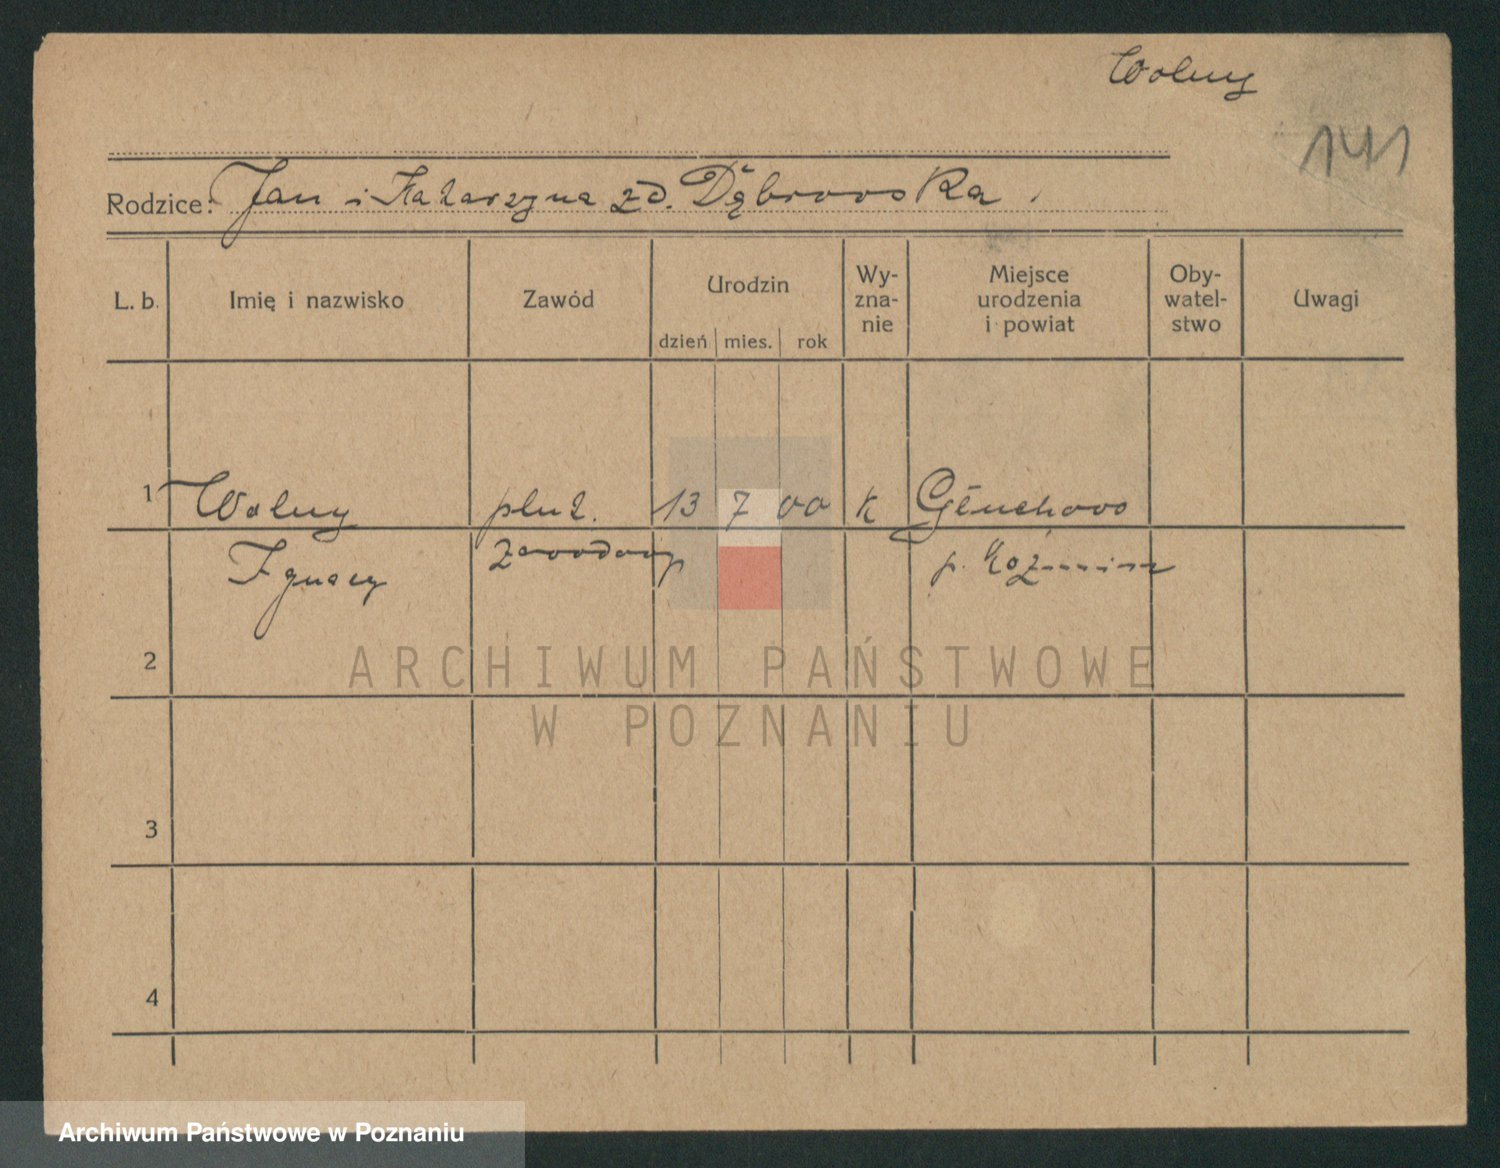 Wolny
141
Rodzice: Jan i Katarzyna zd. Dąbrowska.
L. b. Imię i nazwisko Zawód Urodzin Wy-zna-nie Miejsce urodzenia i powiat Oby-watel-stwo Uwagi
dzień mies. rok
1 Wolny plut. 13 7 00 K Głuchowo
Ignacy zawodowy p. Koźmin
2
ARCHIWUM PAŃSTWOWE
W POZNANIU
3
4
Archiwum Państwowe w Poznaniu